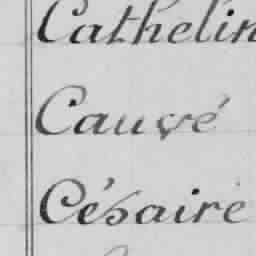 Cathelin
Cauvé
Césaire